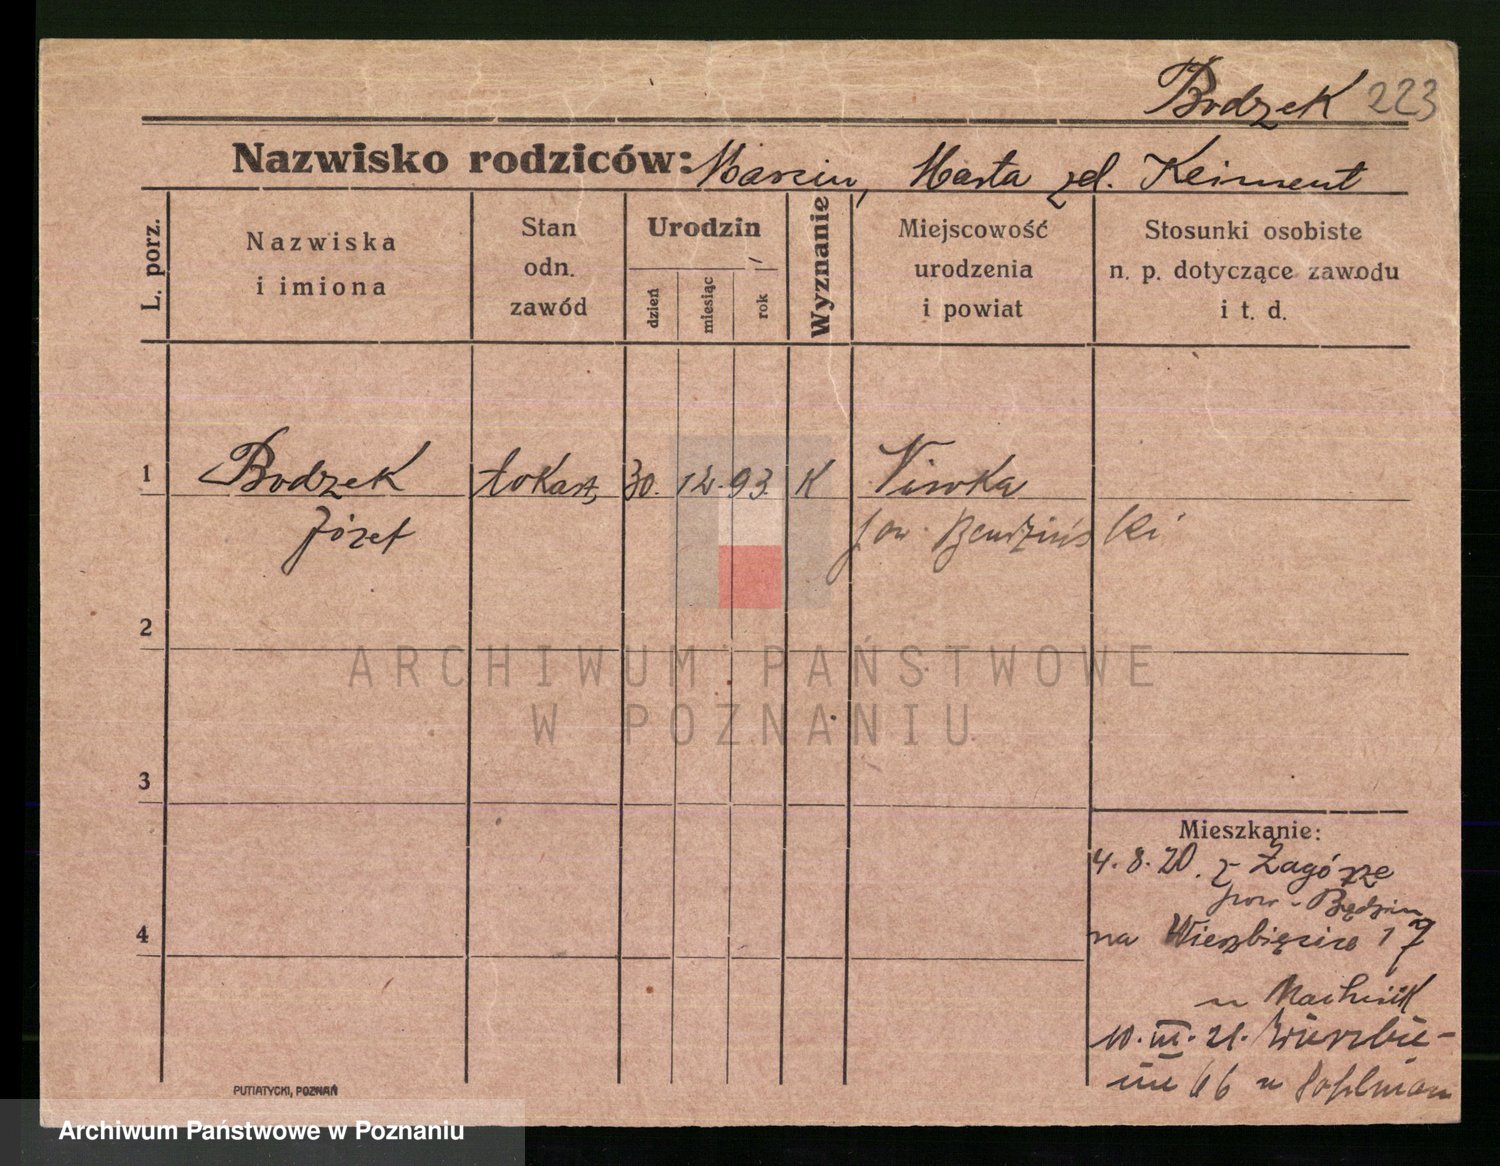 Bodzek 223
Nazwisko rodziców: Marcin, Marta zd. Keiment
L. porz.
Nazwiska
i imiona
Stan
odn.
zawód
Urodzin
dzień
miesiąc
rok
Wyznanie
Miejscowość
urodzenia
i powiat
Stosunki osobiste
n. p. dotyczące zawodu
i t. d.
1 Bodzek tokarz 30. 12. 93. K Niwka
Józef pow. Bendzinski
2
ARCHIWUM PAŃSTWOWE
W POZNANIU
3
Mieszkanie:
4. 8. 20. z Zagórze
pow. Będzin
4
na Wierzbięcice 17
u
10. III. 21. Wierzbie-
cice 66 u
PUTIATYCKI, POZNAŃ
Archiwum Państwowe w Poznaniu